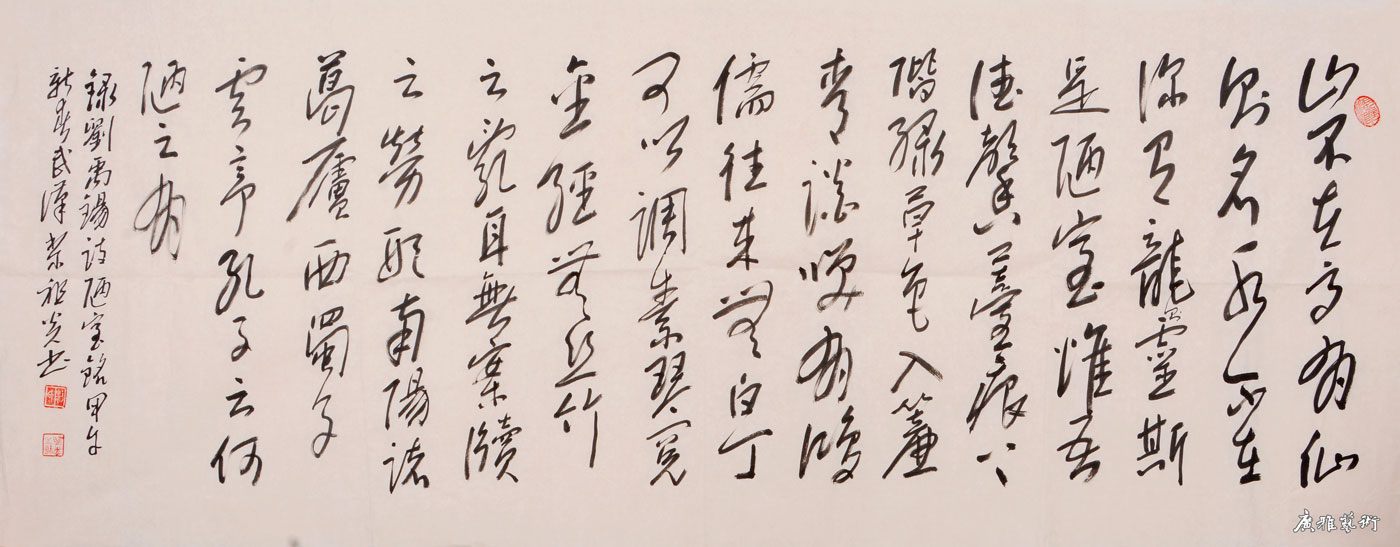 山不在高有仙
則名水不在
深有龍則靈斯
是陋室惟吾
德馨苔痕上
階綠草色入簾
青談笑有鴻
儒往來無白丁
可以調素琴閱
金經無絲竹
之亂耳無案牘
之勞形南陽諸
葛廬西蜀子
雲亭孔子云何
陋之有
錄劉禹錫詩陋室銘甲午
新春武漢祖炎书
廣雅藝術